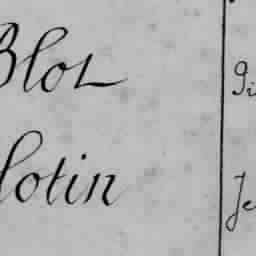 Blot
lotin
Je